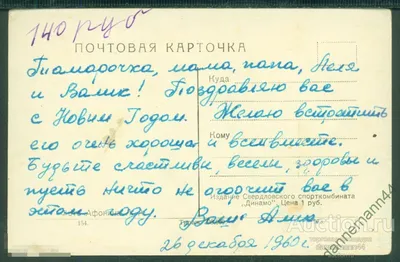 140 руб
ПОЧТОВАЯ КАРТОЧКА
Тамарочка, мама, папа, Леля
Куда
и Валик! Поздравляю вас
с Новым Годом. Желаю встретить
Кому
его очень хорошо и всем вместе.
Будьте счастливы, веселы, здоровы и
пусть ничто не огорчит вас в
Издание Свердловского спорткомбината
этом году.
"Динамо" Цена 1 руб.
Ваша
26 декабря 1960 г.
Auction.ru
dannemann44